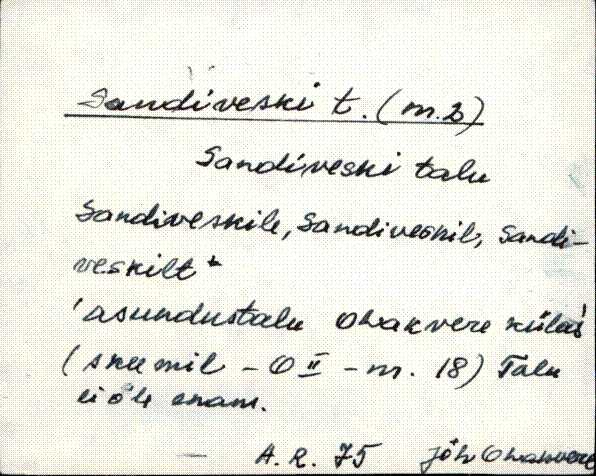 Sandiveski t. (m. 2)
Sandiveski talu
Sandiveskile, Sandiveskil, Sandi-
veskilt
'asundustalu Ohakvere külas'
(skeemil - O II - nr. 18) Talu
ei ole enam.
A. R. 75 Jõh Ohakvere